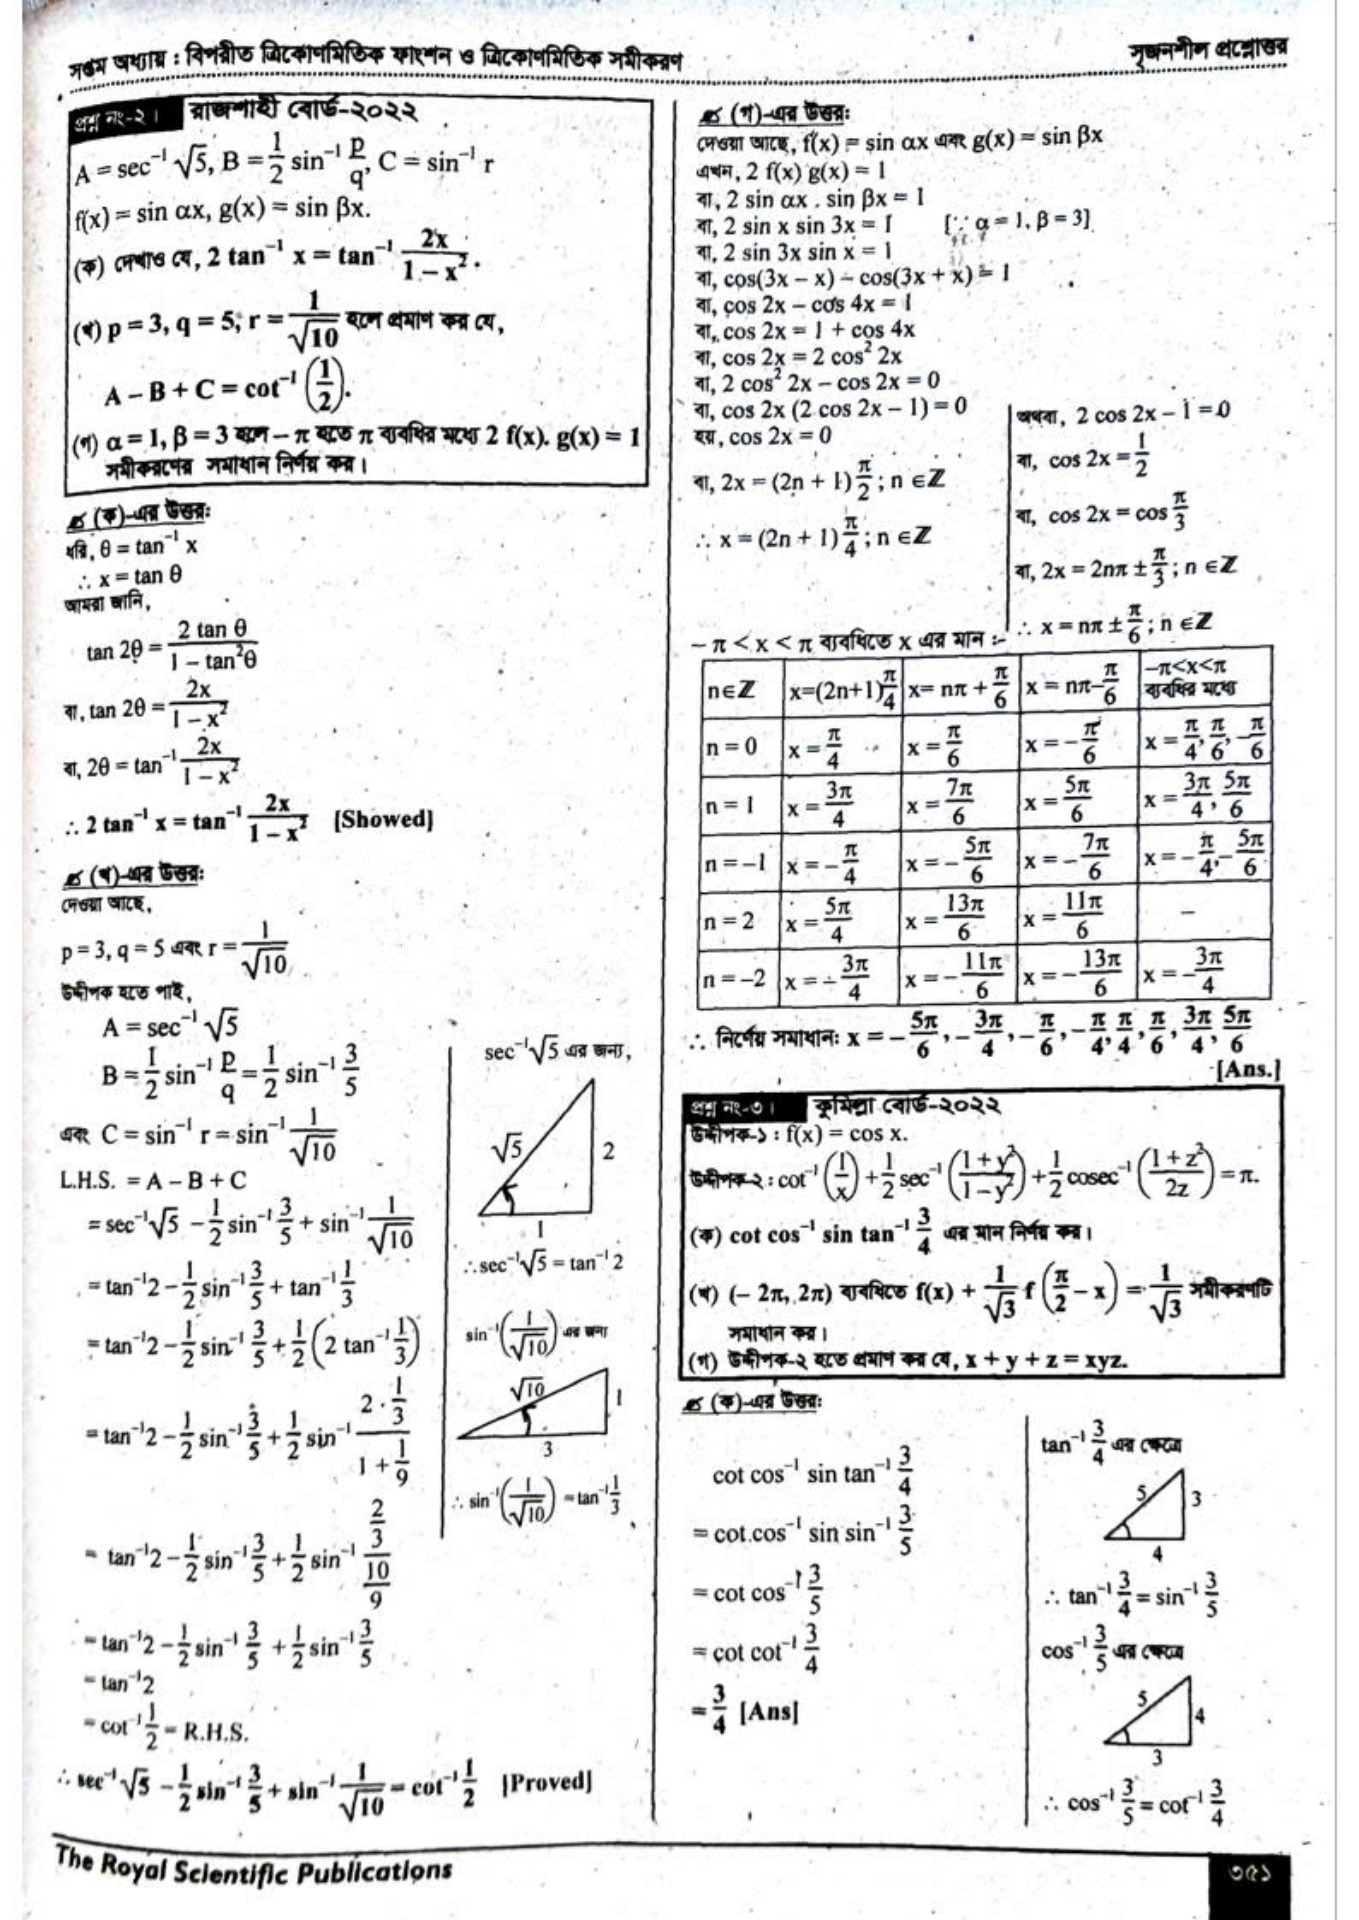 সপ্তম অধ্যায় : বিপরীত ত্রিকোণমিতিক ফাংশন ও ত্রিকোণমিতিক সমীকরণ
সৃজনশীল প্রশ্নোত্তর
প্রশ্ন নং-২। রাজশাহী বোর্ড-২০২২
A = sec⁻¹ √5, B = 1/2 sin⁻¹ p/q, C = sin⁻¹ r
f(x) = sin αx, g(x) = sin βx.
(ক) দেখাও যে, 2 tan⁻¹ x = tan⁻¹ 2x/(1 – x²).
(খ) p = 3, q = 5, r = 1/√10 হলে প্রমাণ কর যে,
A – B + C = cot⁻¹ (1/2).
(গ) α = 1, β = 3 হলে – π হতে π ব্যবধির মধ্যে 2 f(x). g(x) = 1
সমীকরণের সমাধান নির্ণয় কর।
(ক)-এর উত্তরঃ
ধরি, θ = tan⁻¹ x
∴ x = tan θ
আমরা জানি,
tan 2θ = 2 tan θ/(1 – tan²θ)
বা, tan 2θ = 2x/(1 – x²)
বা, 2θ = tan⁻¹ 2x/(1 – x²)
∴ 2 tan⁻¹ x = tan⁻¹ 2x/(1 – x²) [Showed]
(খ)-এর উত্তরঃ
দেওয়া আছে,
p = 3, q = 5 এবং r = 1/√10
উদ্দীপক হতে পাই,
A = sec⁻¹ √5
B = 1/2 sin⁻¹ p/q = 1/2 sin⁻¹ 3/5
এবং C = sin⁻¹ r = sin⁻¹ 1/√10
L.H.S. = A – B + C
= sec⁻¹√5 – 1/2 sin⁻¹ 3/5 + sin⁻¹ 1/√10
= tan⁻¹2 – 1/2 sin⁻¹ 3/5 + tan⁻¹ 1/3
= tan⁻¹2 – 1/2 sin⁻¹ 3/5 + 1/2 (2 tan⁻¹ 1/3)
= tan⁻¹2 – 1/2 sin⁻¹ 3/5 + 1/2 sin⁻¹ (2 · 1/3)/(1 + 1/9)
= tan⁻¹2 – 1/2 sin⁻¹ 3/5 + 1/2 sin⁻¹ (2/3)/(10/9)
= tan⁻¹2 – 1/2 sin⁻¹ 3/5 + 1/2 sin⁻¹ 3/5
= tan⁻¹2
= cot⁻¹ 1/2 = R.H.S.
∴ sec⁻¹ √5 – 1/2 sin⁻¹ 3/5 + sin⁻¹ 1/√10 = cot⁻¹ 1/2 [Proved]
sec⁻¹√5 এর জন্য,
√5 2
1
∴ sec⁻¹√5 = tan⁻¹ 2
sin⁻¹(1/√10) এর জন্য
√10 1
3
∴ sin⁻¹(1/√10) = tan⁻¹ 1/3
(গ)-এর উত্তরঃ
দেওয়া আছে, f(x) = sin αx এবং g(x) = sin βx
এখন, 2 f(x) g(x) = 1
বা, 2 sin αx . sin βx = 1
বা, 2 sin x sin 3x = 1 [∵ α = 1, β = 3]
বা, 2 sin 3x sin x = 1
বা, cos(3x – x) – cos(3x + x) = 1
বা, cos 2x – cos 4x = 1
বা, cos 2x = 1 + cos 4x
বা, cos 2x = 2 cos² 2x
বা, 2 cos² 2x – cos 2x = 0
বা, cos 2x (2 cos 2x – 1) = 0
হয়, cos 2x = 0
বা, 2x = (2n + 1) π/2 ; n ∈ℤ
∴ x = (2n + 1) π/4 ; n ∈ℤ
অথবা, 2 cos 2x – 1 = 0
বা, cos 2x = 1/2
বা, cos 2x = cos π/3
বা, 2x = 2nπ ± π/3 ; n ∈ℤ
∴ x = nπ ± π/6 ; n ∈ℤ
– π < x < π ব্যবধিতে x এর মান :-
n∈ℤ x=(2n+1)π/4 x= nπ + π/6 x = nπ– π/6 –π<x<π ব্যবধির মধ্যে
n = 0 x = π/4 x = π/6 x = – π/6 x = π/4, π/6, – π/6
n = 1 x = 3π/4 x = 7π/6 x = 5π/6 x = 3π/4, 5π/6
n = –1 x = – π/4 x = – 5π/6 x = – 7π/6 x = – π/4, – 5π/6
n = 2 x = 5π/4 x = 13π/6 x = 11π/6 –
n = –2 x = – 3π/4 x = – 11π/6 x = – 13π/6 x = – 3π/4
∴ নির্ণেয় সমাধানঃ x = – 5π/6, – 3π/4, – π/6, – π/4, π/4, π/6, 3π/4, 5π/6
[Ans.]
প্রশ্ন নং-৩। কুমিল্লা বোর্ড-২০২২
উদ্দীপক-১ : f(x) = cos x.
উদ্দীপক-২ : cot⁻¹ (1/x) + 1/2 sec⁻¹ ((1 + y²)/(1 – y²)) + 1/2 cosec⁻¹ ((1 + z²)/2z) = π.
(ক) cot cos⁻¹ sin tan⁻¹ 3/4 এর মান নির্ণয় কর।
(খ) (– 2π, 2π) ব্যবধিতে f(x) + 1/√3 f (π/2 – x) = 1/√3 সমীকরণটি
সমাধান কর।
(গ) উদ্দীপক-২ হতে প্রমাণ কর যে, x + y + z = xyz.
(ক)-এর উত্তরঃ
cot cos⁻¹ sin tan⁻¹ 3/4
= cot.cos⁻¹ sin sin⁻¹ 3/5
= cot cos⁻¹ 3/5
= cot cot⁻¹ 3/4
= 3/4 [Ans]
tan⁻¹ 3/4 এর ক্ষেত্রে
5 3
4
∴ tan⁻¹ 3/4 = sin⁻¹ 3/5
cos⁻¹ 3/5 এর ক্ষেত্রে
5 4
3
∴ cos⁻¹ 3/5 = cot⁻¹ 3/4
The Royal Scientific Publications
৩৫১